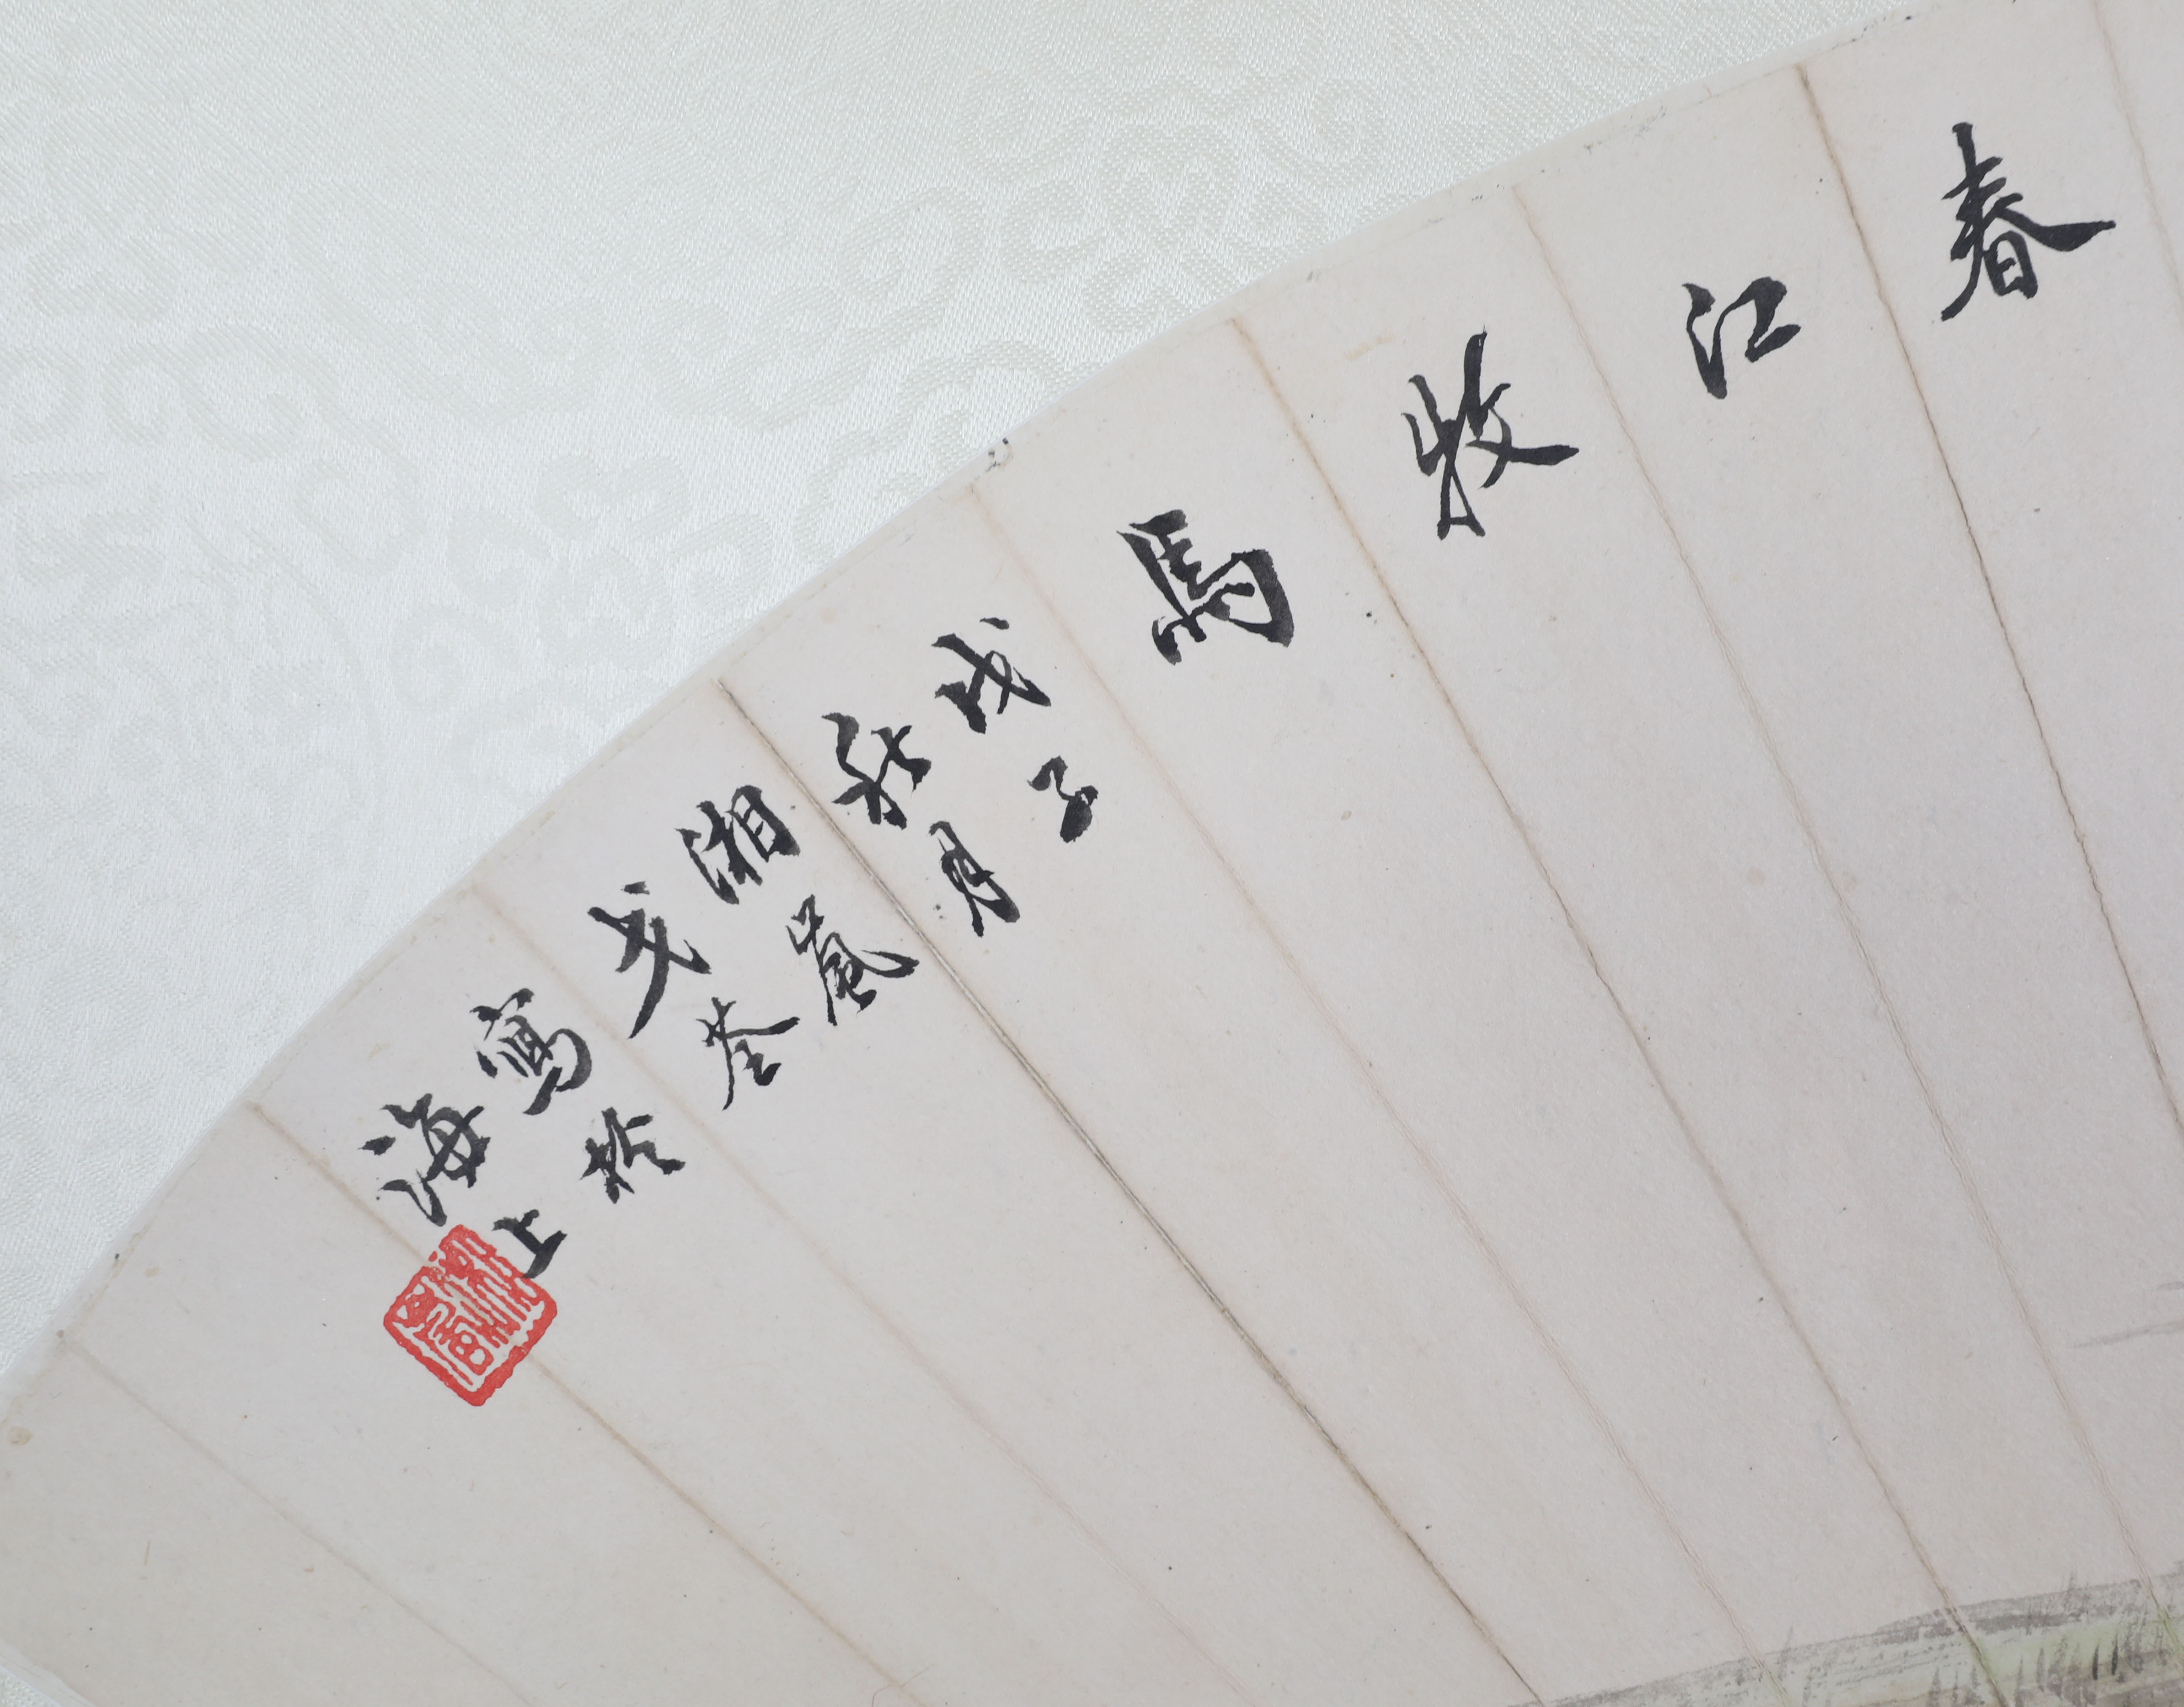 春江牧馬
戊子
秋月
湘嵐
戈荃
寫於
海上